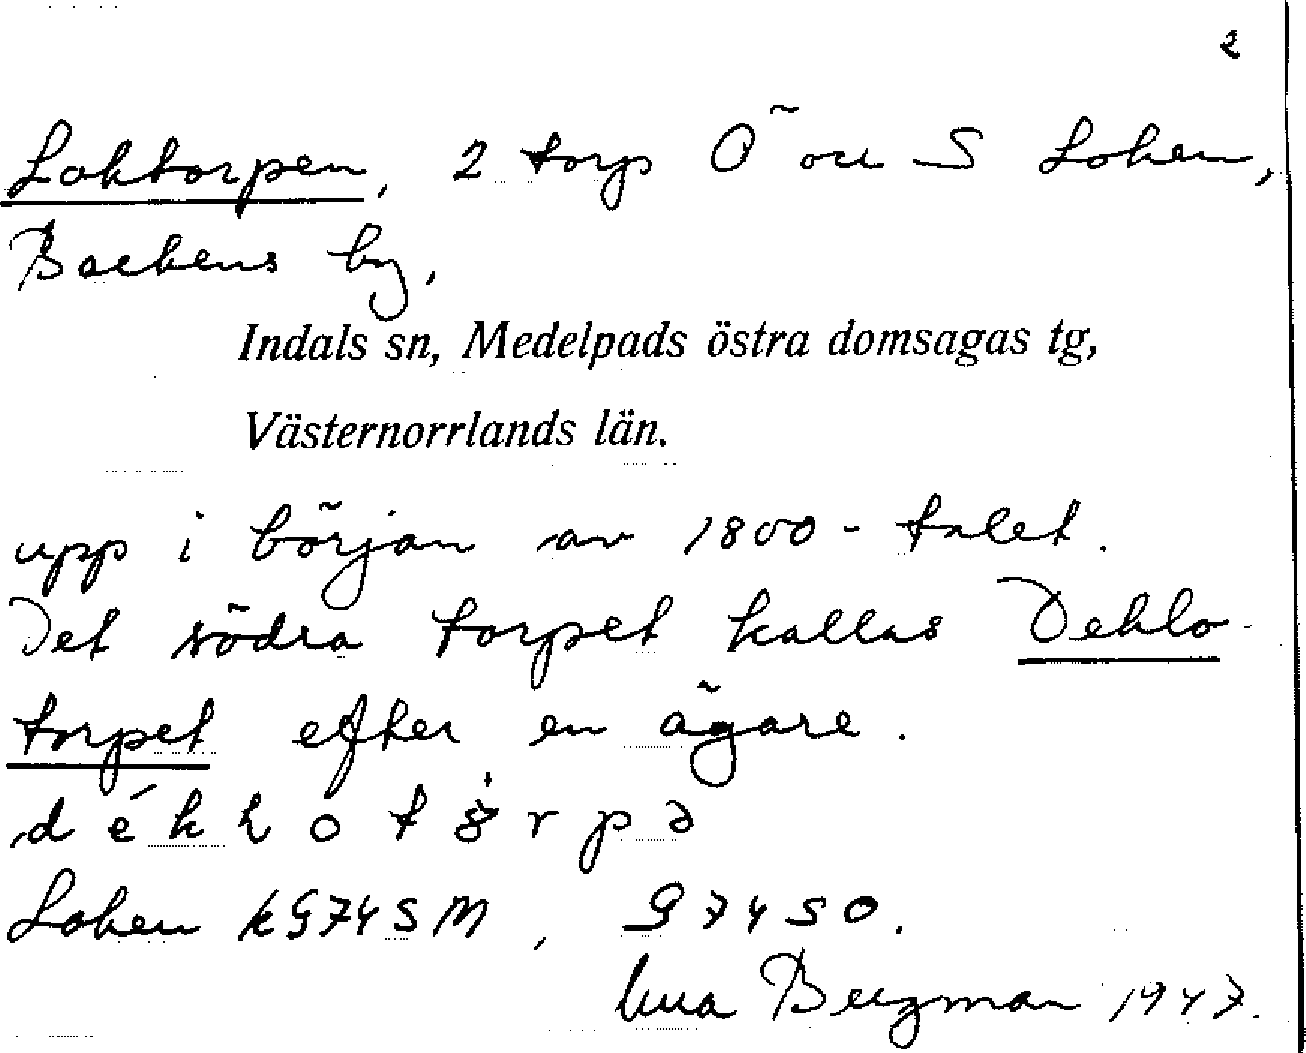 2
Loktorpen, 2 torp Ö och S Loken,
Backens by,
Indals sn, Medelpads östra domsagas tg,
Västernorrlands län.
upp i början av 1800-talet.
Det södra torpet kallas Deklo-
torpet efter en ägare.
Loken k G74SM, G74SO.
Bergman 1947.